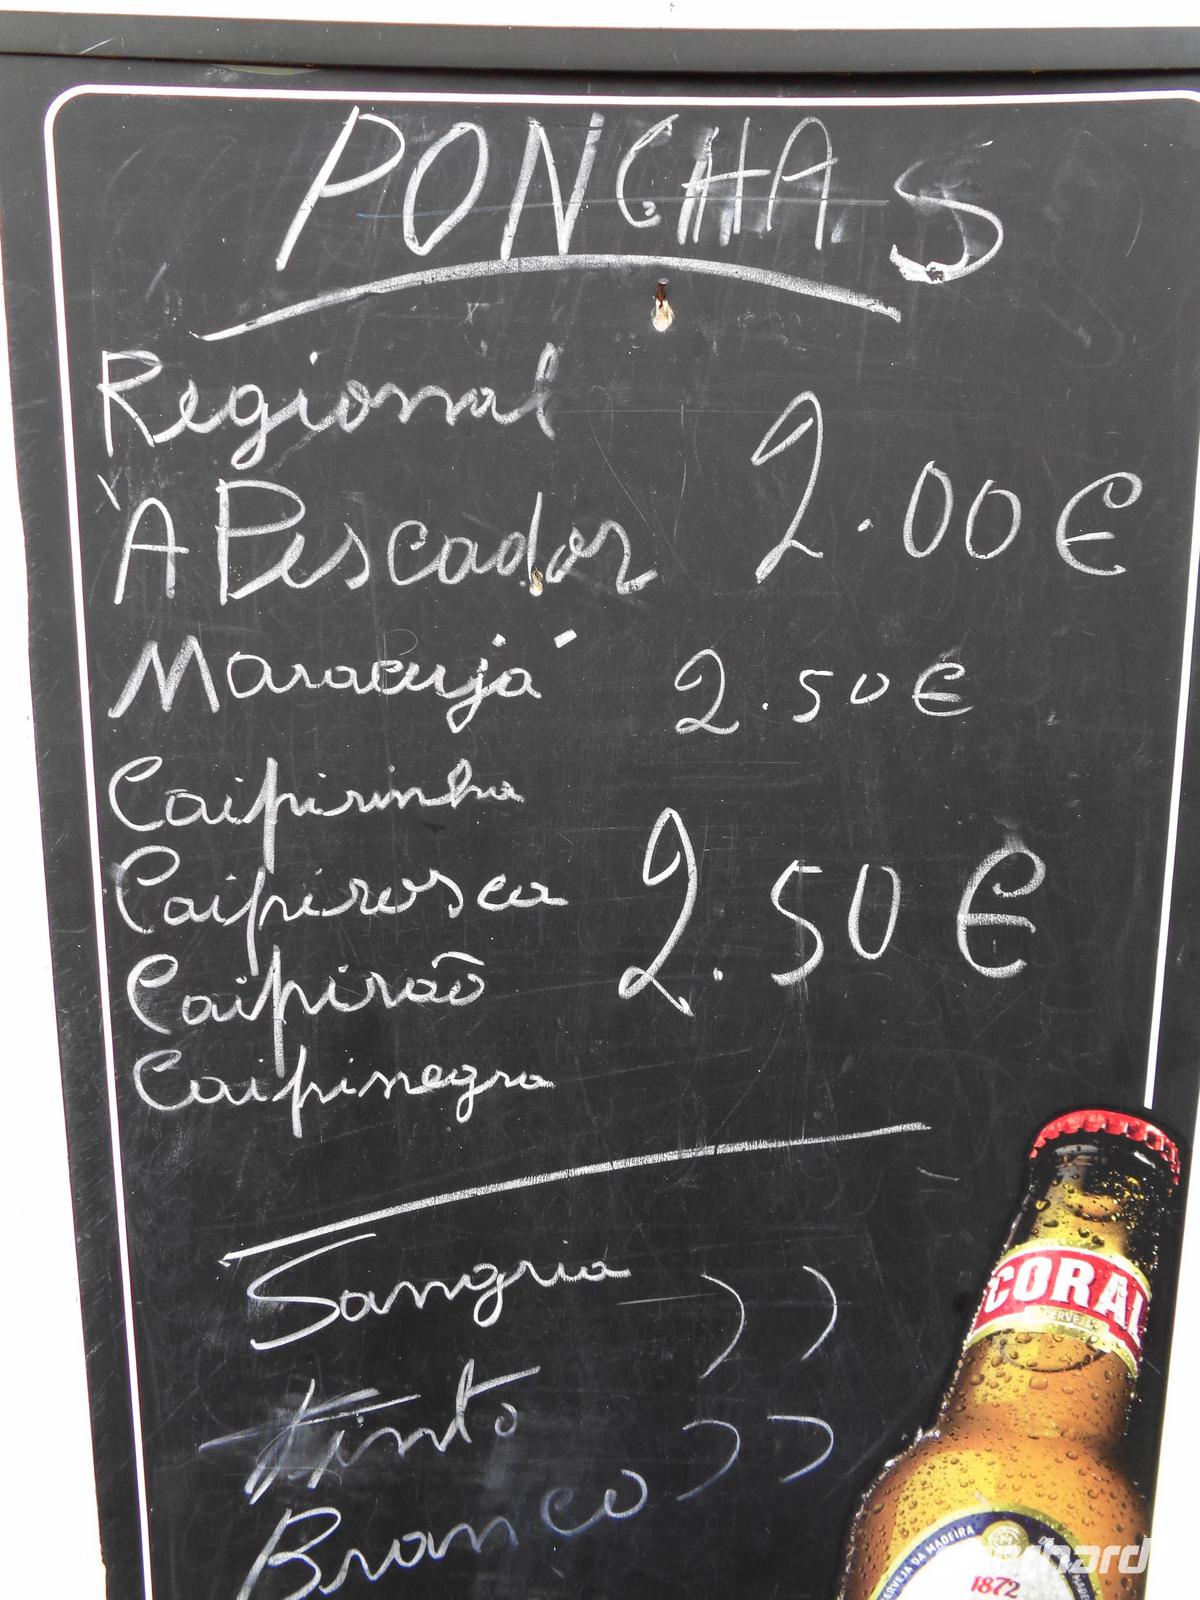 PONCHAS
Regional
À Pescador 2.00€
Maracujá 2.50€
Caipirinha
Caipirosca 2.50€
Caipirão
Caipinegra
Sangria ))
Tinto
Branco ))
CORAL
CERVEJA
CERVEJA DA MADEIRA
1872